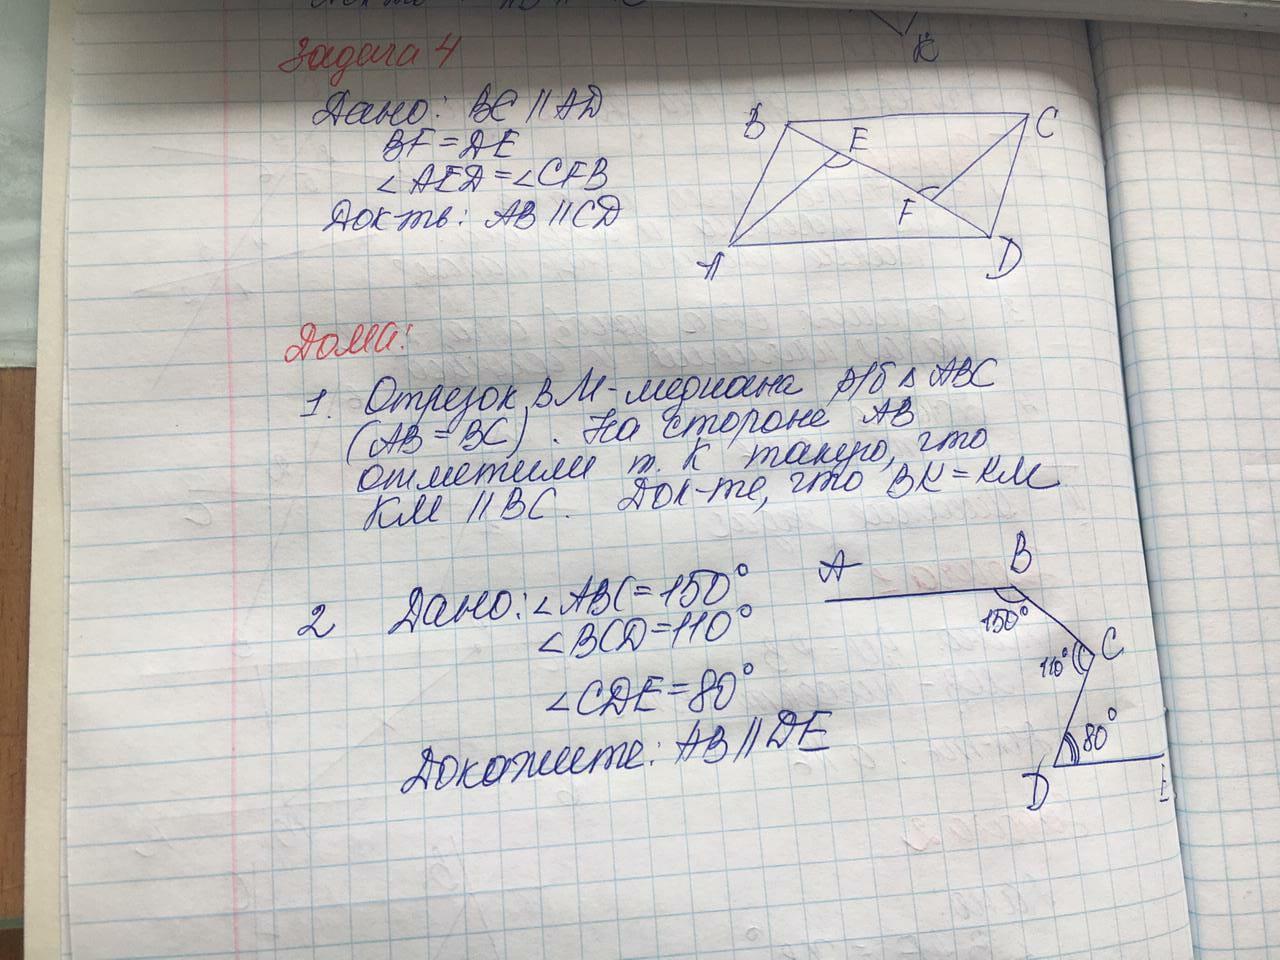 K
Задача 4
Дано: BC || AD
BF = DE
∠AED = ∠CFB
Док-ть: AB || CD
B
C
E
F
A
D
Дома:
1. Отрезок BM - медиана р/б △ ABC
(AB = BC). На стороне AB
отметили т. K такую, что
KM || BC. Док-те, что BK = KM
2 Дано: ∠ABC = 150°
∠BCD = 110°
∠CDE = 80°
Докажите: AB || DE
A
B
150°
C
110°
80°
D
E